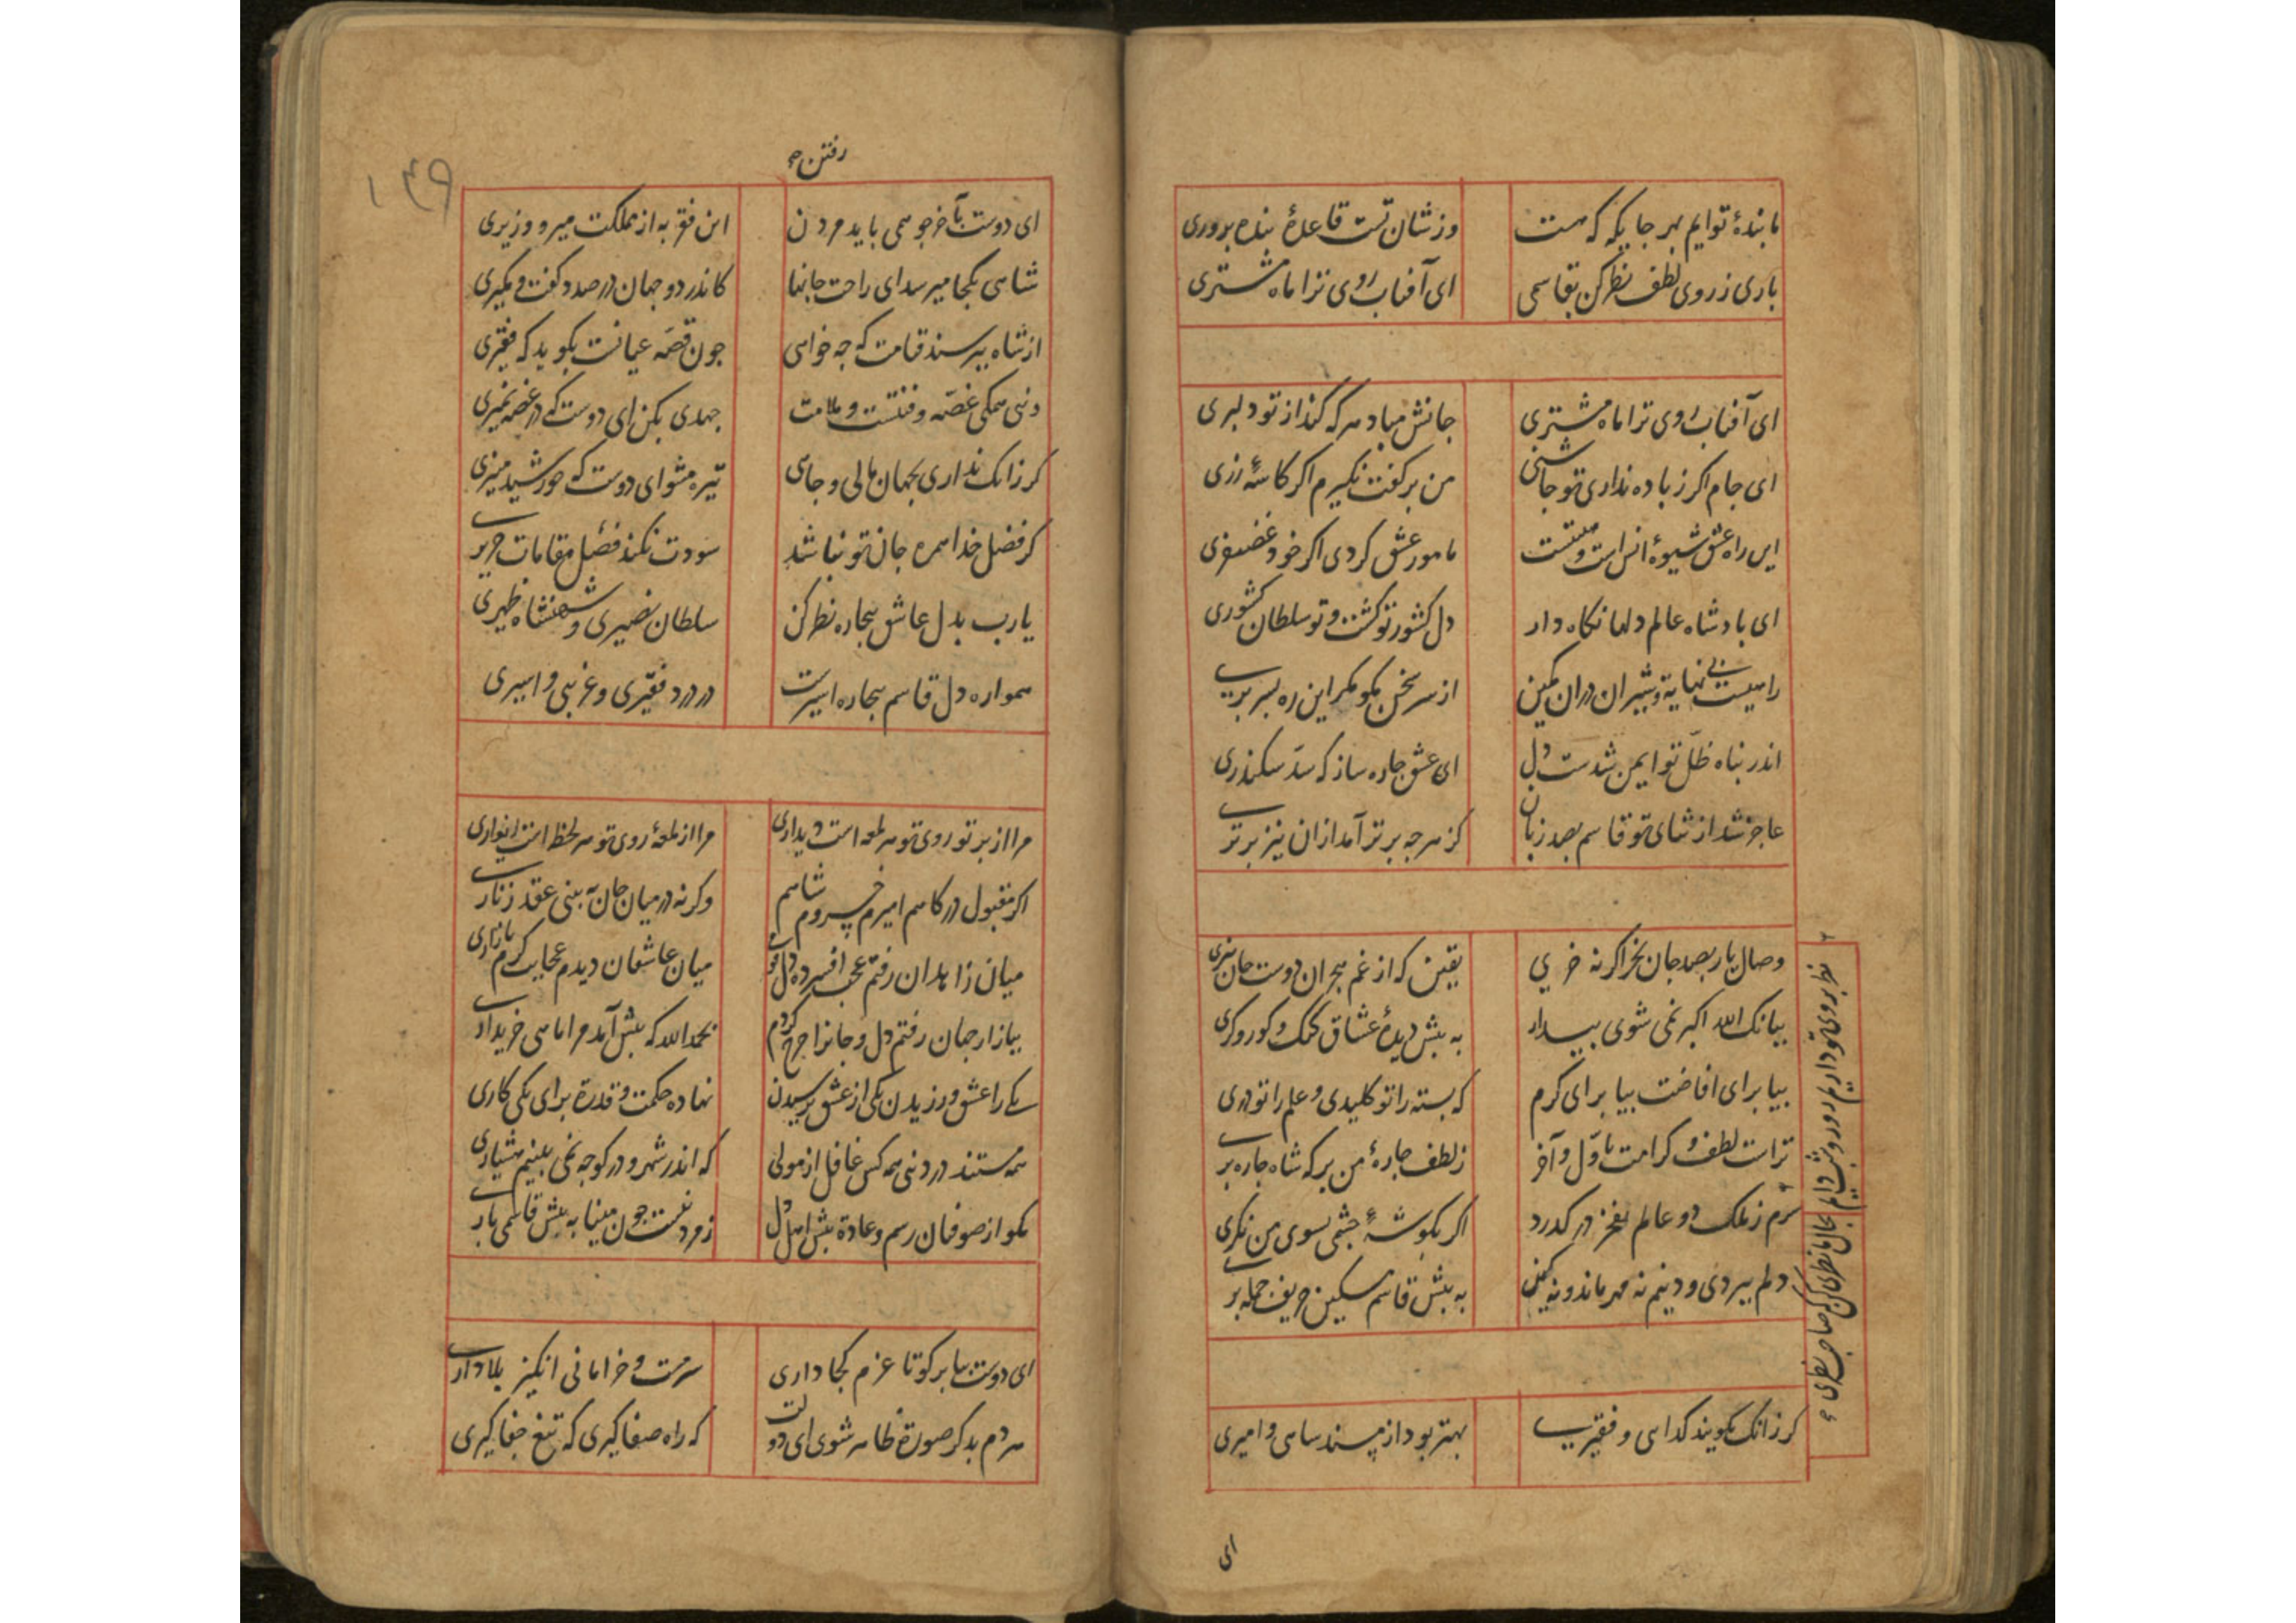 ما بندهٔ توایم بهر جایکه که هست
وز شان تست قاعدهٔ بنده پروری
باری ز روی لطف نظر کن بقاسمی
ای آفتاب روی ترا ماه مشتری
ای آفتاب روی ترا ماه مشتری
جانش مباد هر که کند از تو دلبری
ای جام اگر ز باده نداری تو چاشنی
من بر کفت نگیرم اگر کاسهٔ زری
این راه عشق شیوهٔ انس است و
مامور عشق کردی اگر خود غضنفری
ای بادشاه عالم دلها نگاه دار
دل کشور تو کشت و تو سلطان کشوری
راهیست بی نهایة و شیران دران کمین
از سر سخن مگو مگر این ره بسر بری
اندر پناه ظلّ تو ایمن شدست دل
ای عشق چاره ساز که سدّ سکندری
عاجز شد از ثنای تو قاسم بصد زبان
کز هرچه برتر آمد ازان نیز برتری
وصال یار بصد جان بخر اگر نه خری
یقین که از غم هجران دوست جان نبری
ببانک الله اکبر نمی شوی بیدار
به پیش دیدهٔ عشاق کنک و کور و کری
بیا برای افاضت بیا برای کرم
که بسته را تو کلیدی و علم را تو دری
تراست لطف و کرامت باوّل و آخر
ز لطف چارهٔ من بر که شاه چاره بری
سرم ز ملک دو عالم بفخر در کدرد
اگر بگوشهٔ چشمی بسوی من نگری
دلم ببردی و دینم نه مهر ماند و نه کین
به پیش قاسم مسکین حریف حمله بری
نظر بروی تو دارم
کر زانک بگویند کدایی و فقیری
بهتر بود از مسند شاهی و امیری
ای
۱۴۹
رفتن
ای دوست بآخر چو همی باید مردن
این فقر به از مملکت میر و وزیری
شاهی بکجا میرسد ای راحت جانها
کاندر دو جهان در صدد گفت و مگیری
از شاه بپرسند قیامت که چه خواهی
چون قصّه عیانست بگوید که فقیری
دنیی همکی غصّه و فتنست و ملامت
جهدی بکن ای دوست که در غصه نمیری
کر زانک نداری بجهان مالی و جاهی
تیره مشو ای دوست که خورشید منیری
کر فضل خدا همره جان تو نباشد
سودت نکند فضل مقامات حریری
یارب بدل عاشق بیچاره نظر کن
سلطان نصیری و شهنشاه ظهیری
همواره دل قاسم بیچاره اسیرست
در درد فقیری و غریبی و اسیری
مرا از پرتو روی تو هر لمعه است دیداری
مرا از لمعهٔ روی تو هر لحظ است انواری
اگر مقبول درکاهم امیرم خسروم شاهم
وگرنه در میان جان ببینی عقد زناری
میان زاهدان رفتم عجب افسرده دل قومی
میان عاشقان دیدم عجایب گرم بازاری
ببازار جهان رفتم دل و جانرا خرج کردم
بحمدالله که پیش آمد مرا ماهی خریداری
یکی را عشق ورزیدن یکی از عشق پرسیدن
نهاده حکمت و قدرة برای یکی کاری
همه مستند در دنیی همه کس غافل از مولی
که اندر شهر و در کوچه نمی بینیم هشیاری
مکو از صوفیان رسم و عادة پیش اهل دل
ای دوست بیا بر گو تا عزم کجا داری
سرمست و خرامانی انگیز بلا داری
هر دم بدگر صورة ظاهر شوی ای دوست
که راه صفا گیری که تیغ جفا گیری